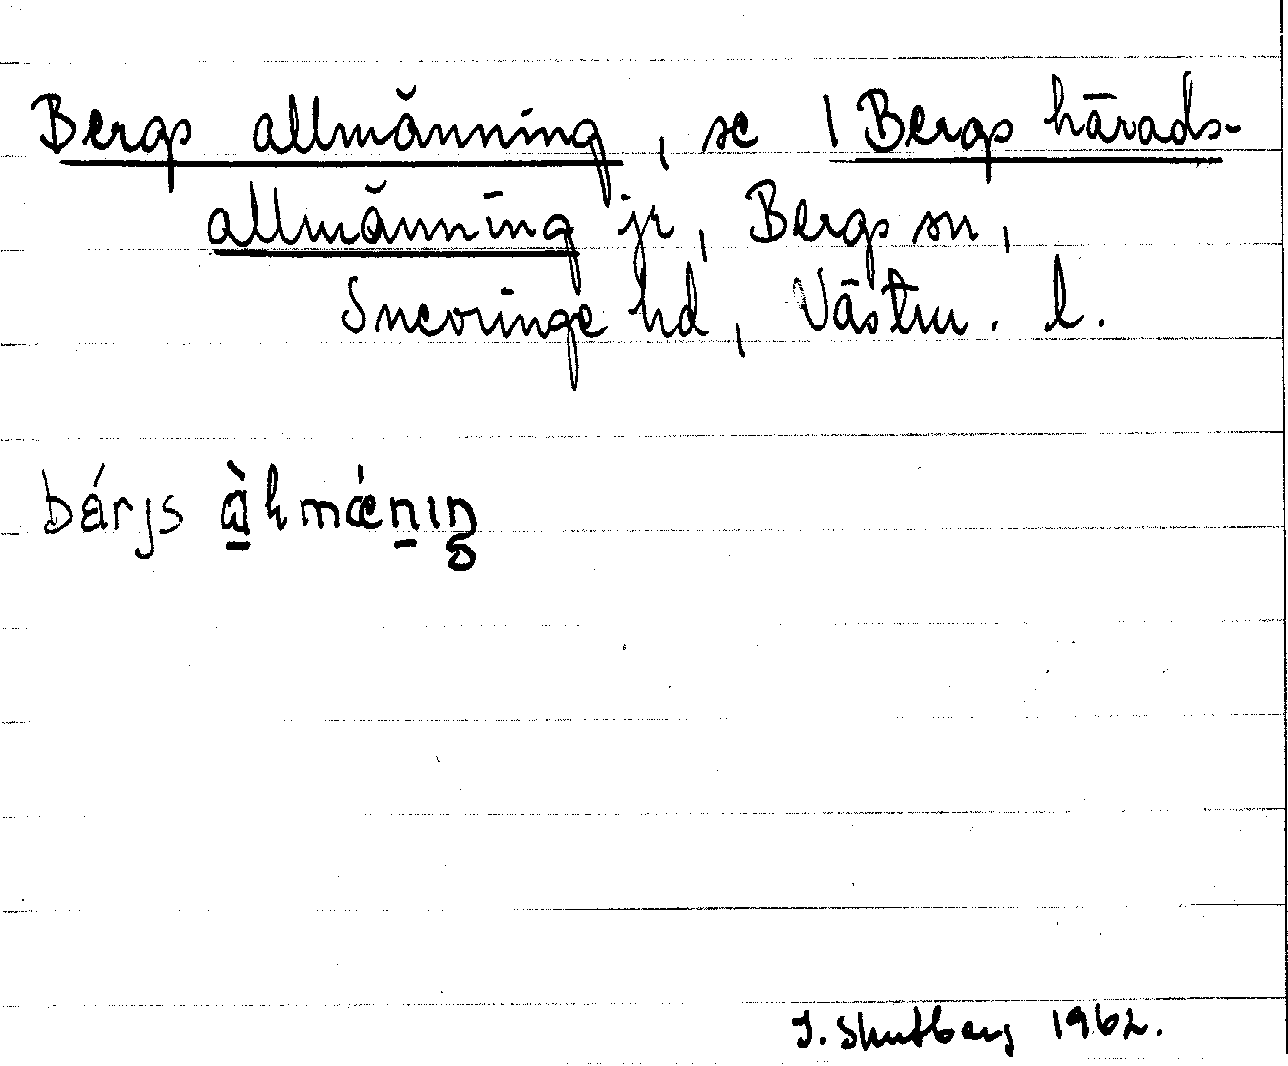 Bergs allmänning, se 1 Bergs härads-
allmänning jr, Bergs sn,
Snevringe hd, Västm. l.
bárjs
1962.